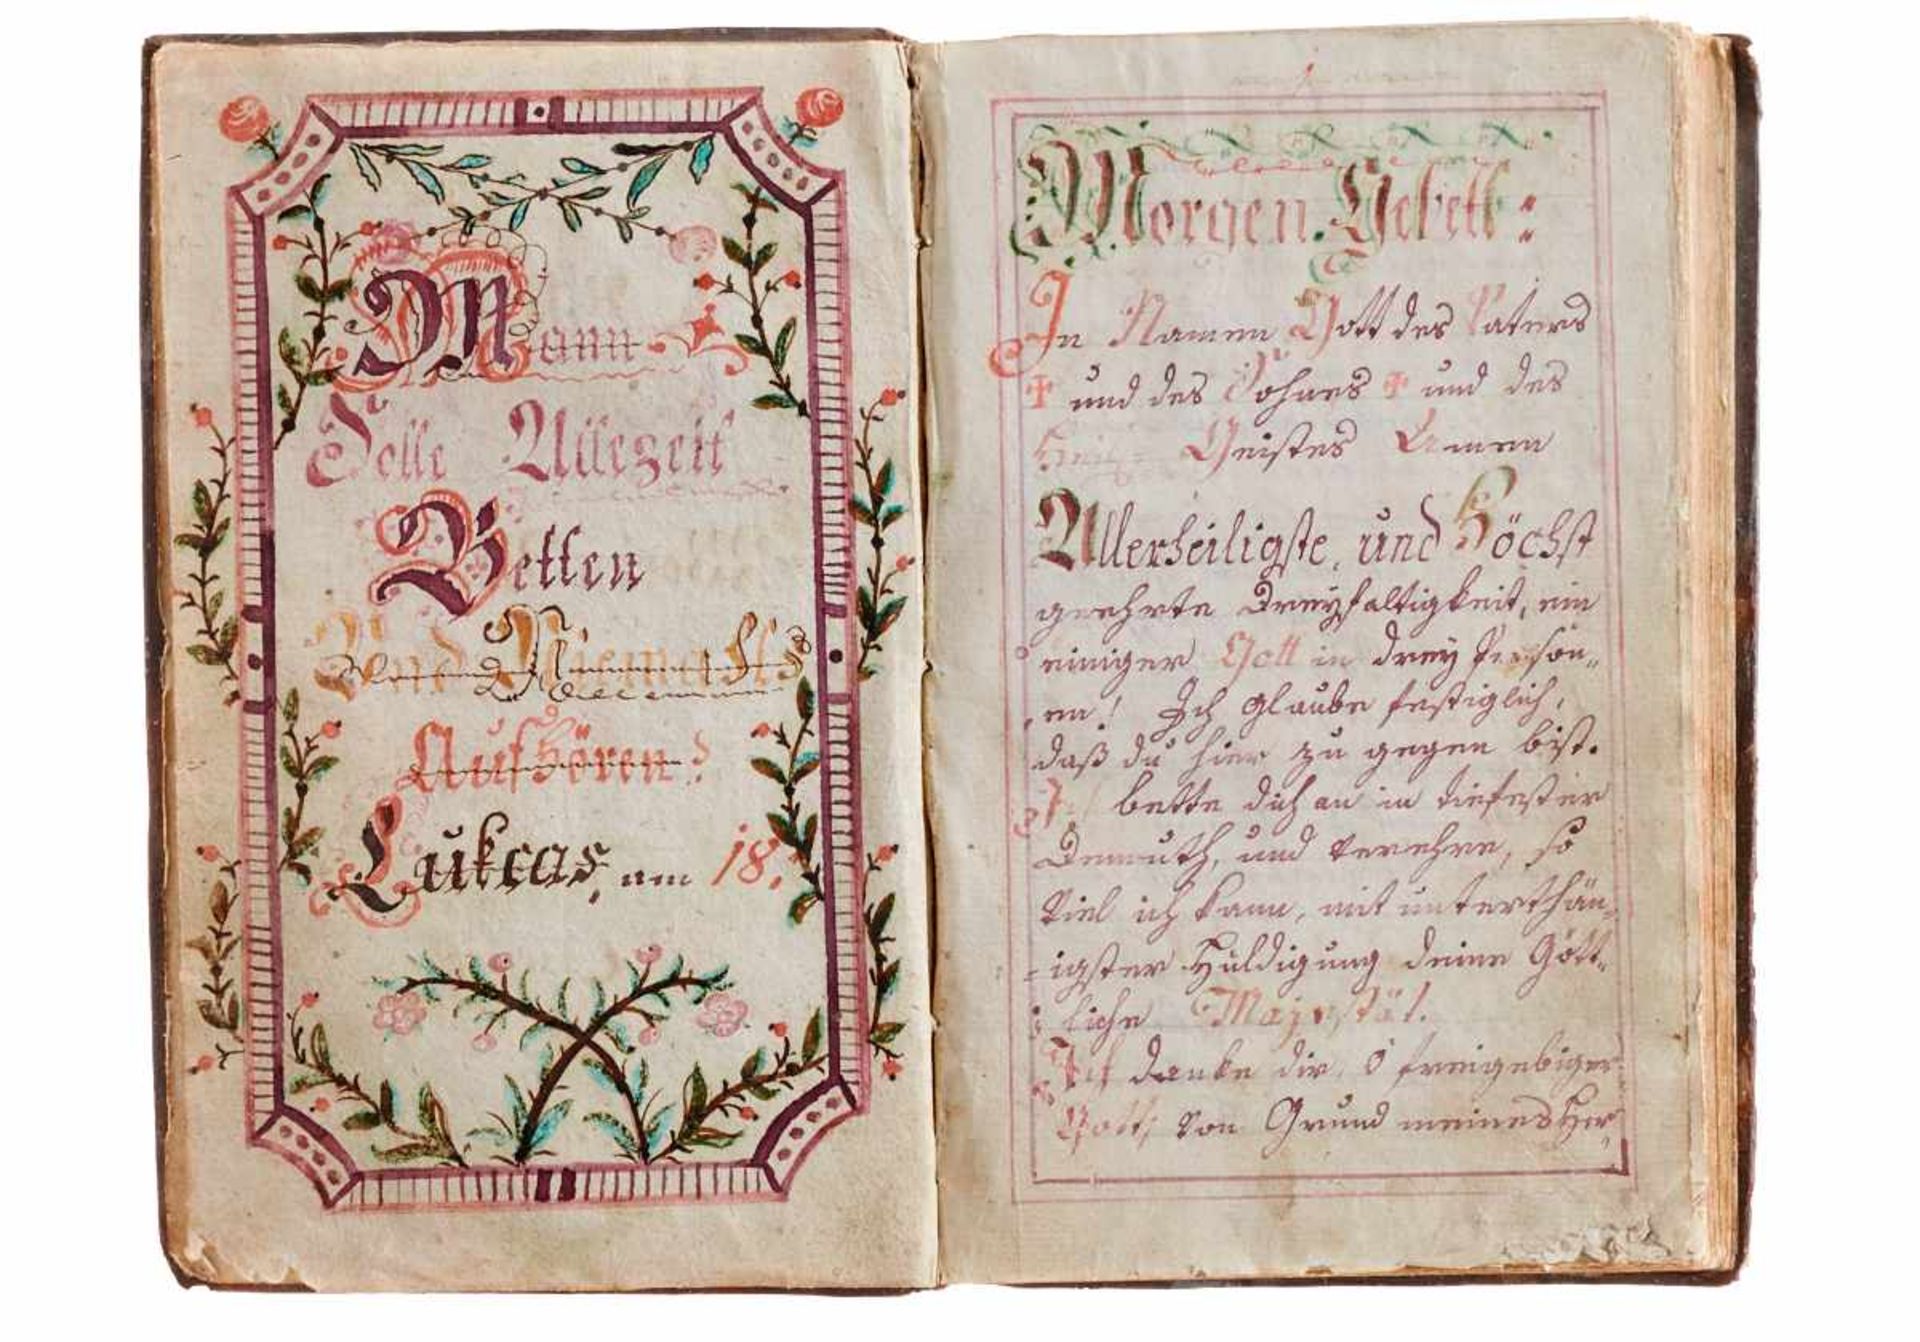 Mann
Solle Allezeit
Betten
Und Niemahls
Aufhören!
Lukas, am 18.
Morgen Gebett:
In Namen Gott des Vaters
✝ und des Sohnes ✝ und des
Heilg: Geistes Amen
Allerheiligste, und Höchst
geehrte Dreyfaltigkeit, ein
einiger Gott in drey Persön„
„en! Ich glaube festiglich,
daß du hier zu gegen bist.
Ich bette dich an in tiefester
Demuth, und verehre, so
viel ich kann, mit unterthän„
=igster Huldigung deine Gött„
liche Majestät.
Ich danke dir, O freigebiger
Gott, von Grund meines Her